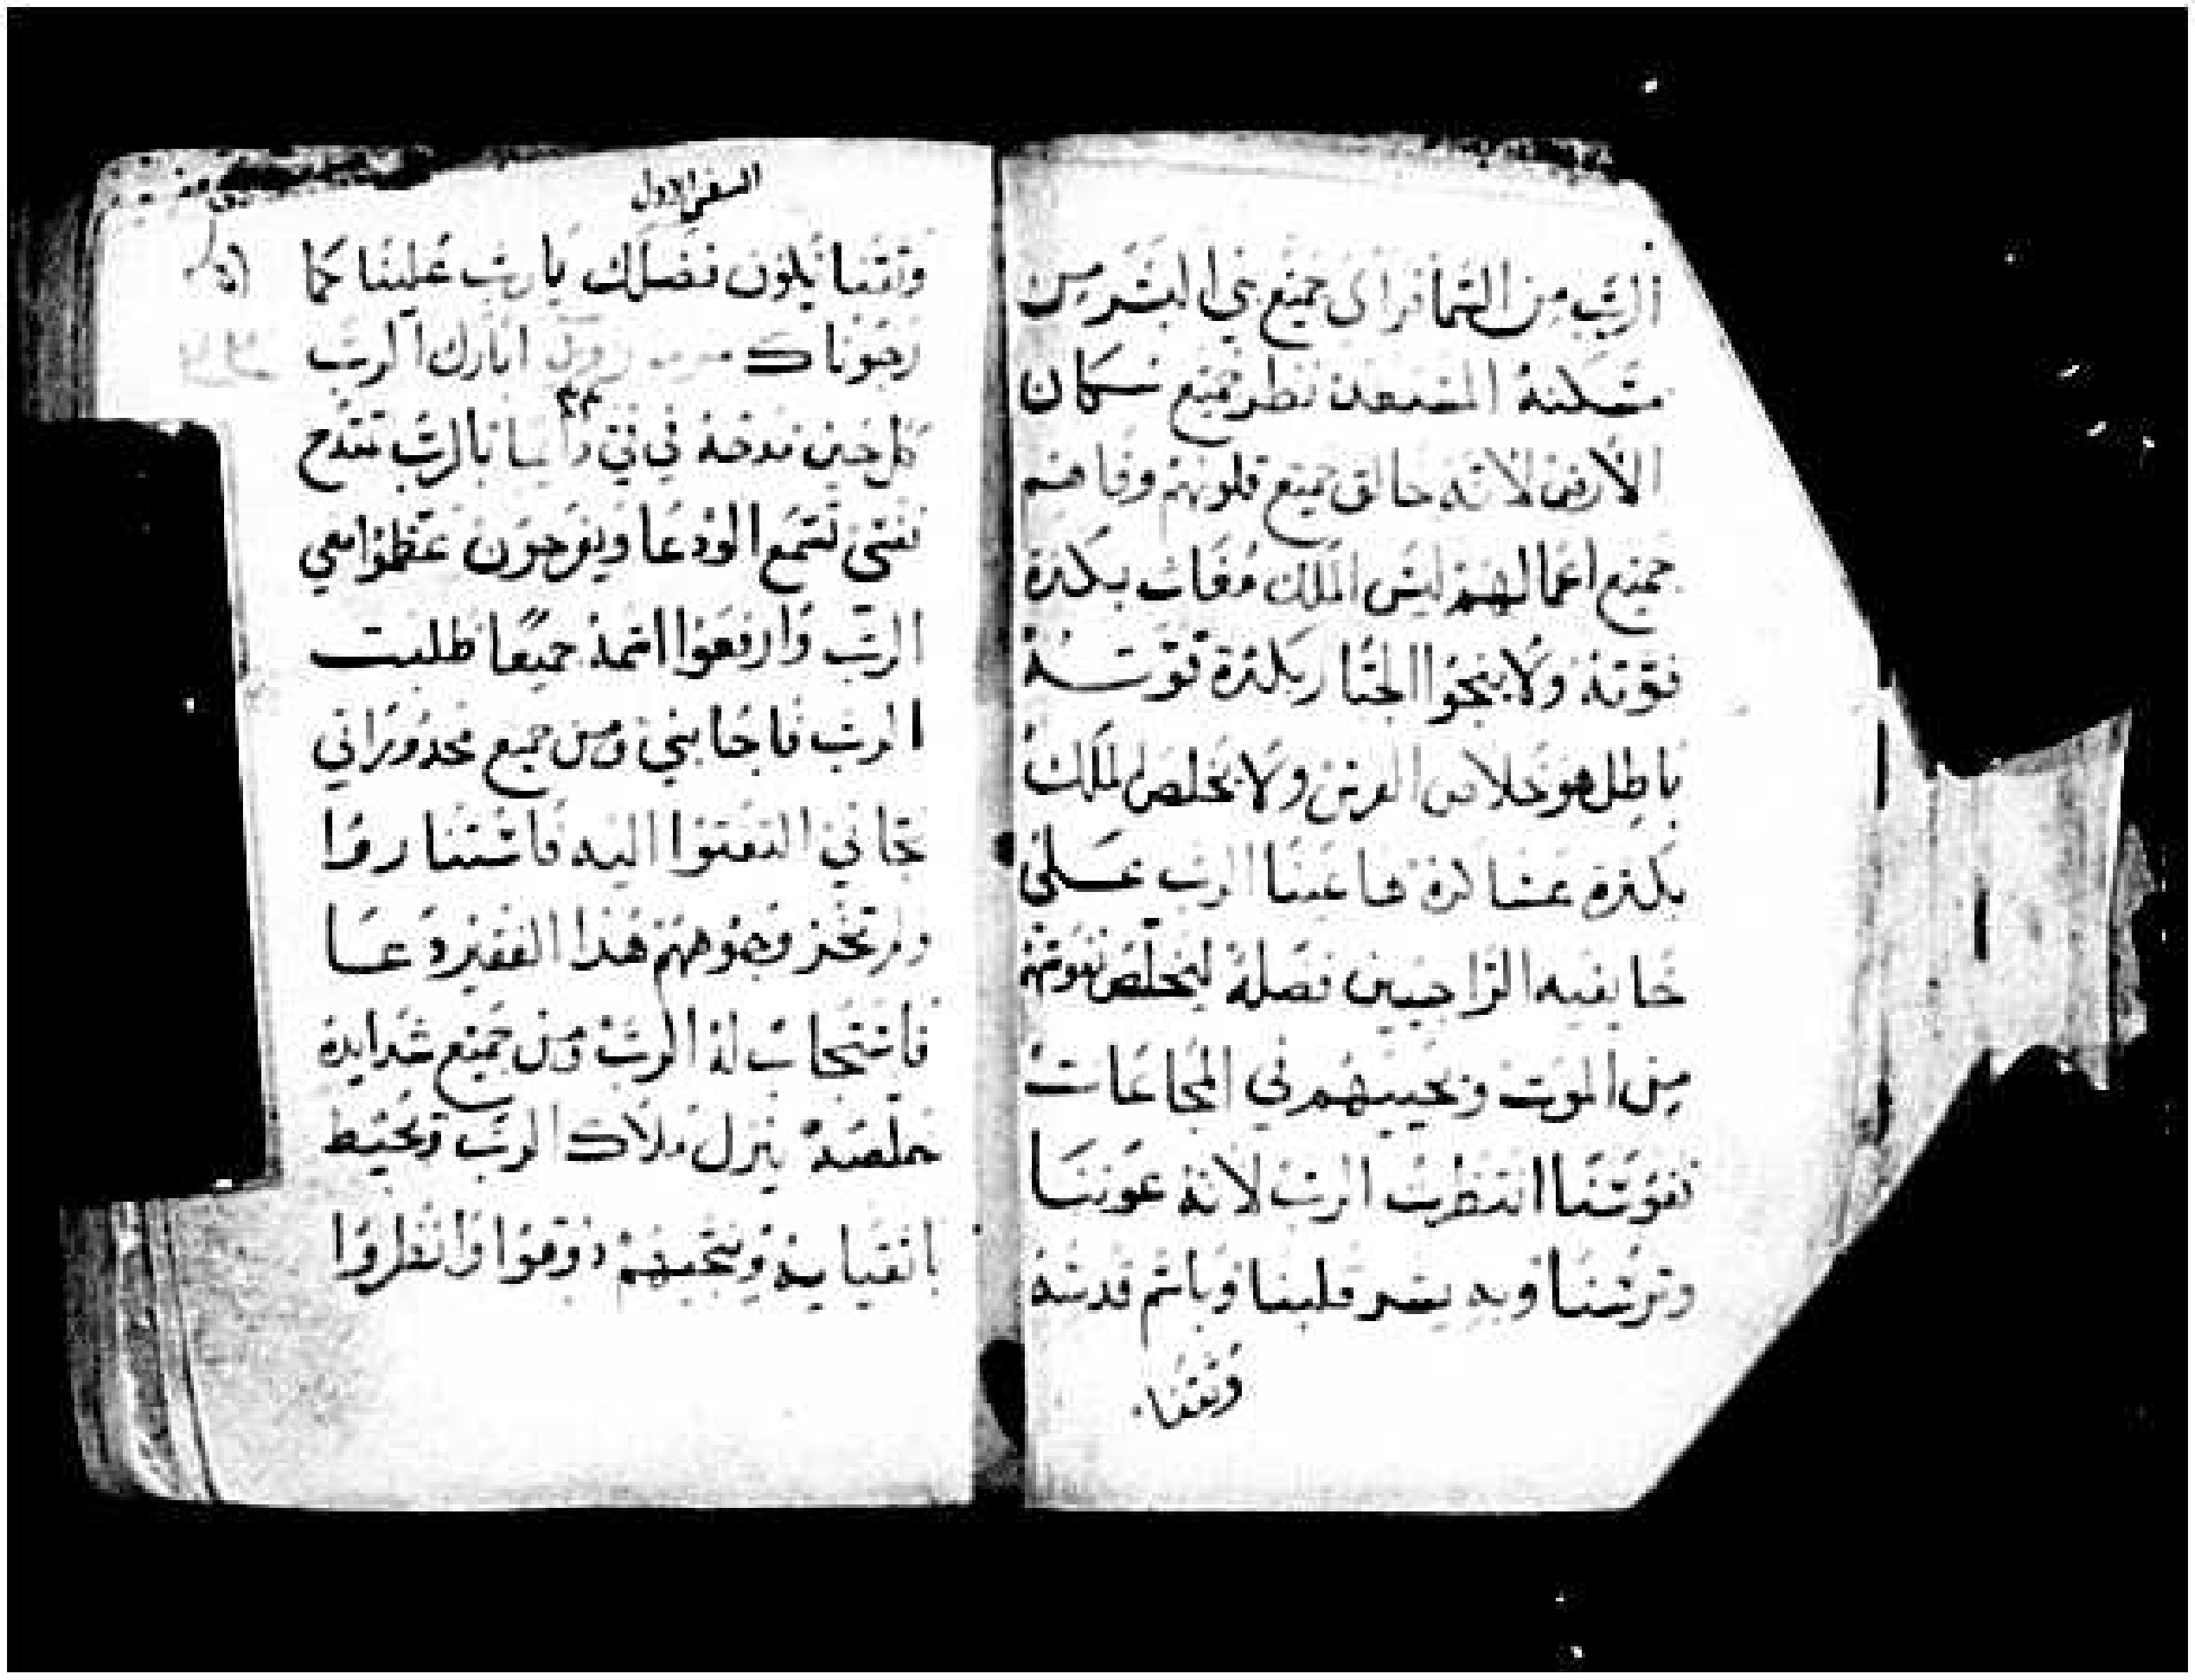 الرب من السما فراى جميع بني البشر من
مسكنه المستعد نظر جميع سكان
الارض لانه خالق جميع قلوبهم وفاهم
جميع اعمالهم ليس الملك مغاث بكثرة
قوته ولا ينجوا الجبار بكثرة قوته
باطل هو خلاص الفرس ولا يخلص الملك
بكثرة عساكره ها عينا الرب على
خايفيه الراجيين فضله ليخلص نفوسهم
من الموت ويحييهم في المجاعات
نفوسنا انتظرت الرب لانه عوننا
وترسنا وبه يسر قلبنا وباسم قدسه
وثقنا
السفر الاول
وثقنا يكون فضلك يا رب علينا كما
رجوناك ابارك الرب
٣٣
كل حين مدحه في في دايما بالرب تمتدح
نفسي تسمع الودعا ويفرحون عظموا معي
الرب وارفعوا اسمه جميعا طلبت
الرب فاجابني ومن جميع محذوراتي
نجاني التفتوا اليه فاستناروا
ولم تخز وجوههم هذا الفقير دعا
فاستجاب له الرب ومن جميع شدايده
خلصه ينزل ملاك الرب ويحيط
باتقيايه وينجيهم ذوقوا وانظروا